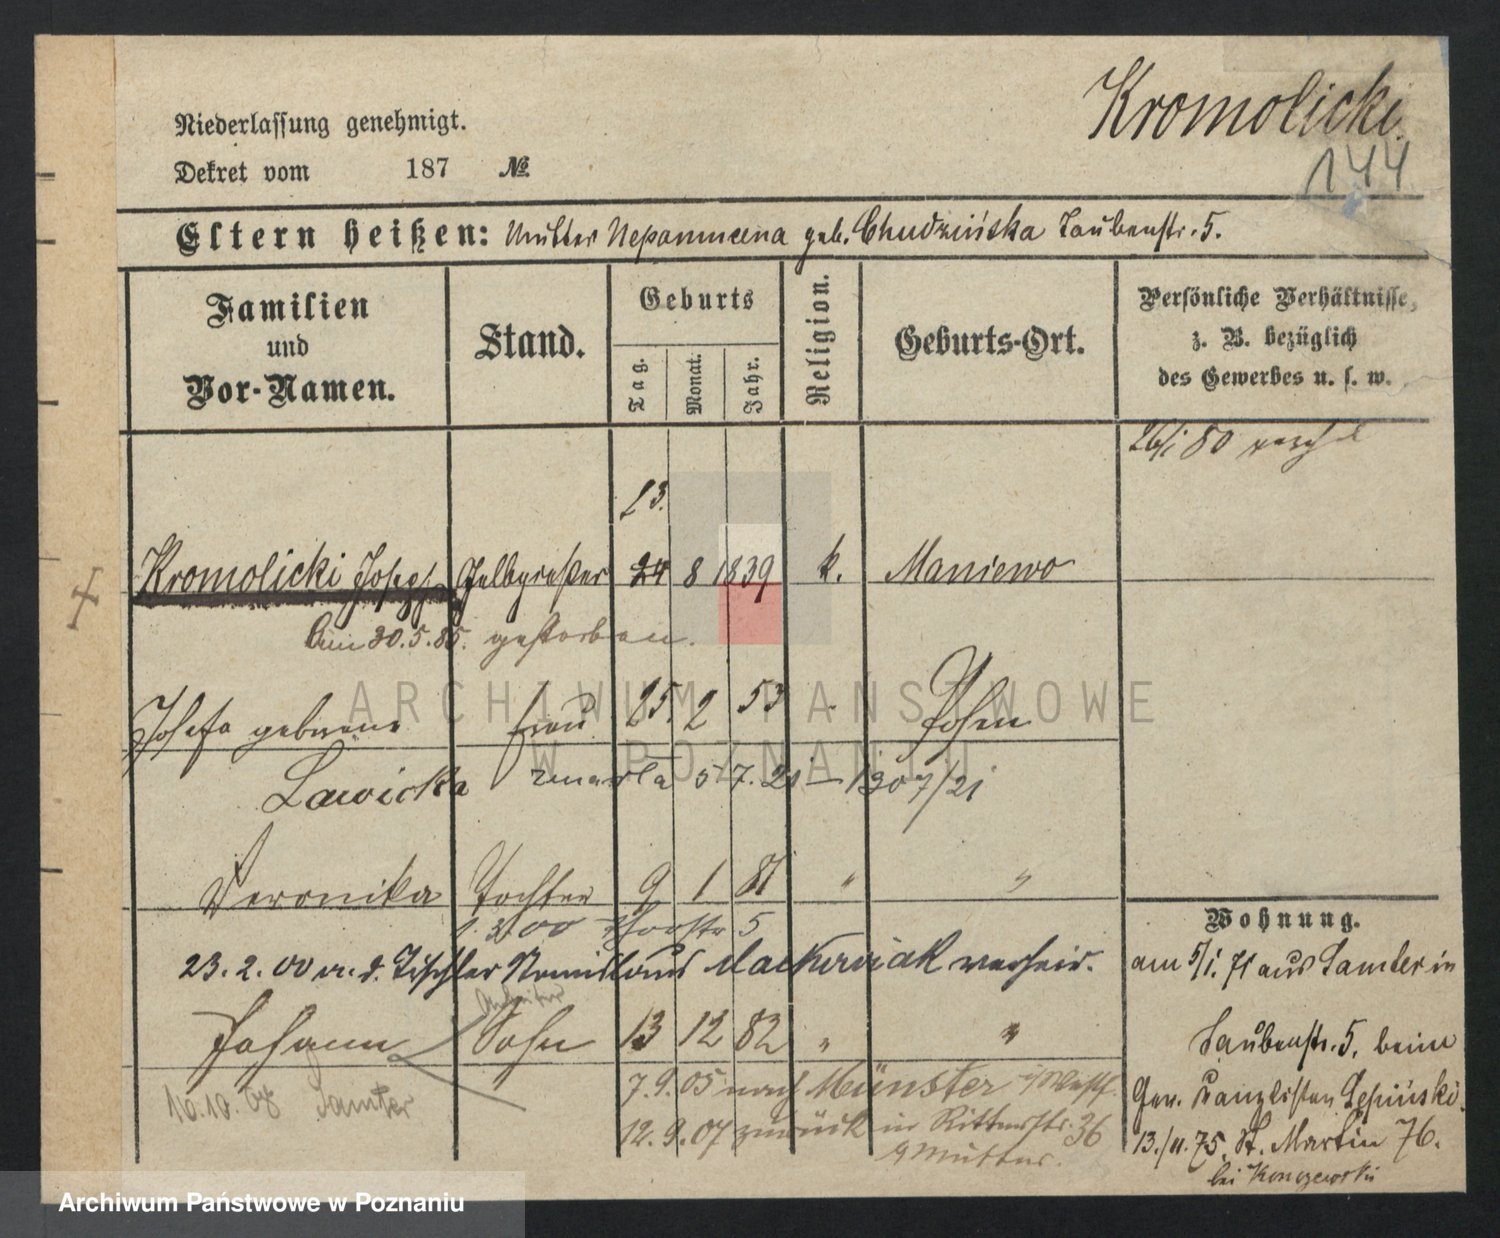 Kromolicki
144
Niederlassung genehmigt.
Dekret vom 187 №
Eltern heißen: Mutter Nepomucena geb. Chudzińska Taubenstr. 5.
Familien und Vor-Namen.
Stand.
Geburts
Tag.
Monat.
Jahr.
Religion.
Geburts-Ort.
Persönliche Verhältnisse,
z. B. bezüglich
des Gewerbes u. s. w.
26/1 80
23.
Kromolicki Joseph Gelbgießer 24 8 1839 k. Maniewo
Am 30.5.85. gestorben.
Josefa geborene Frau 25. 2 53 Posen
Lawicka zmarła 5 7. 21 – 1307/21
Veronika Tochter 9 1 81 " "
1. 3 00 Thorstr 5
23. 2. 00 m. d. Tischler Mackowiak verheir.
Arbeiter
Johann Sohn 13 12 82 " "
7.9.05 nach Münster i/Westf.
10.10.08 Samter
12.9.07 zurück in Ritterstr. 36
Mutter.
Wohnung.
am 5/1. 71 aus Samter in
Taubenstr. 5. beim
Ger. Kanzlisten Lepiński.
13./11. 75. St. Martin 76.
bei Konczewski
ARCHIWUM PAŃSTWOWE
W POZNANIU
Archiwum Państwowe w Poznaniu